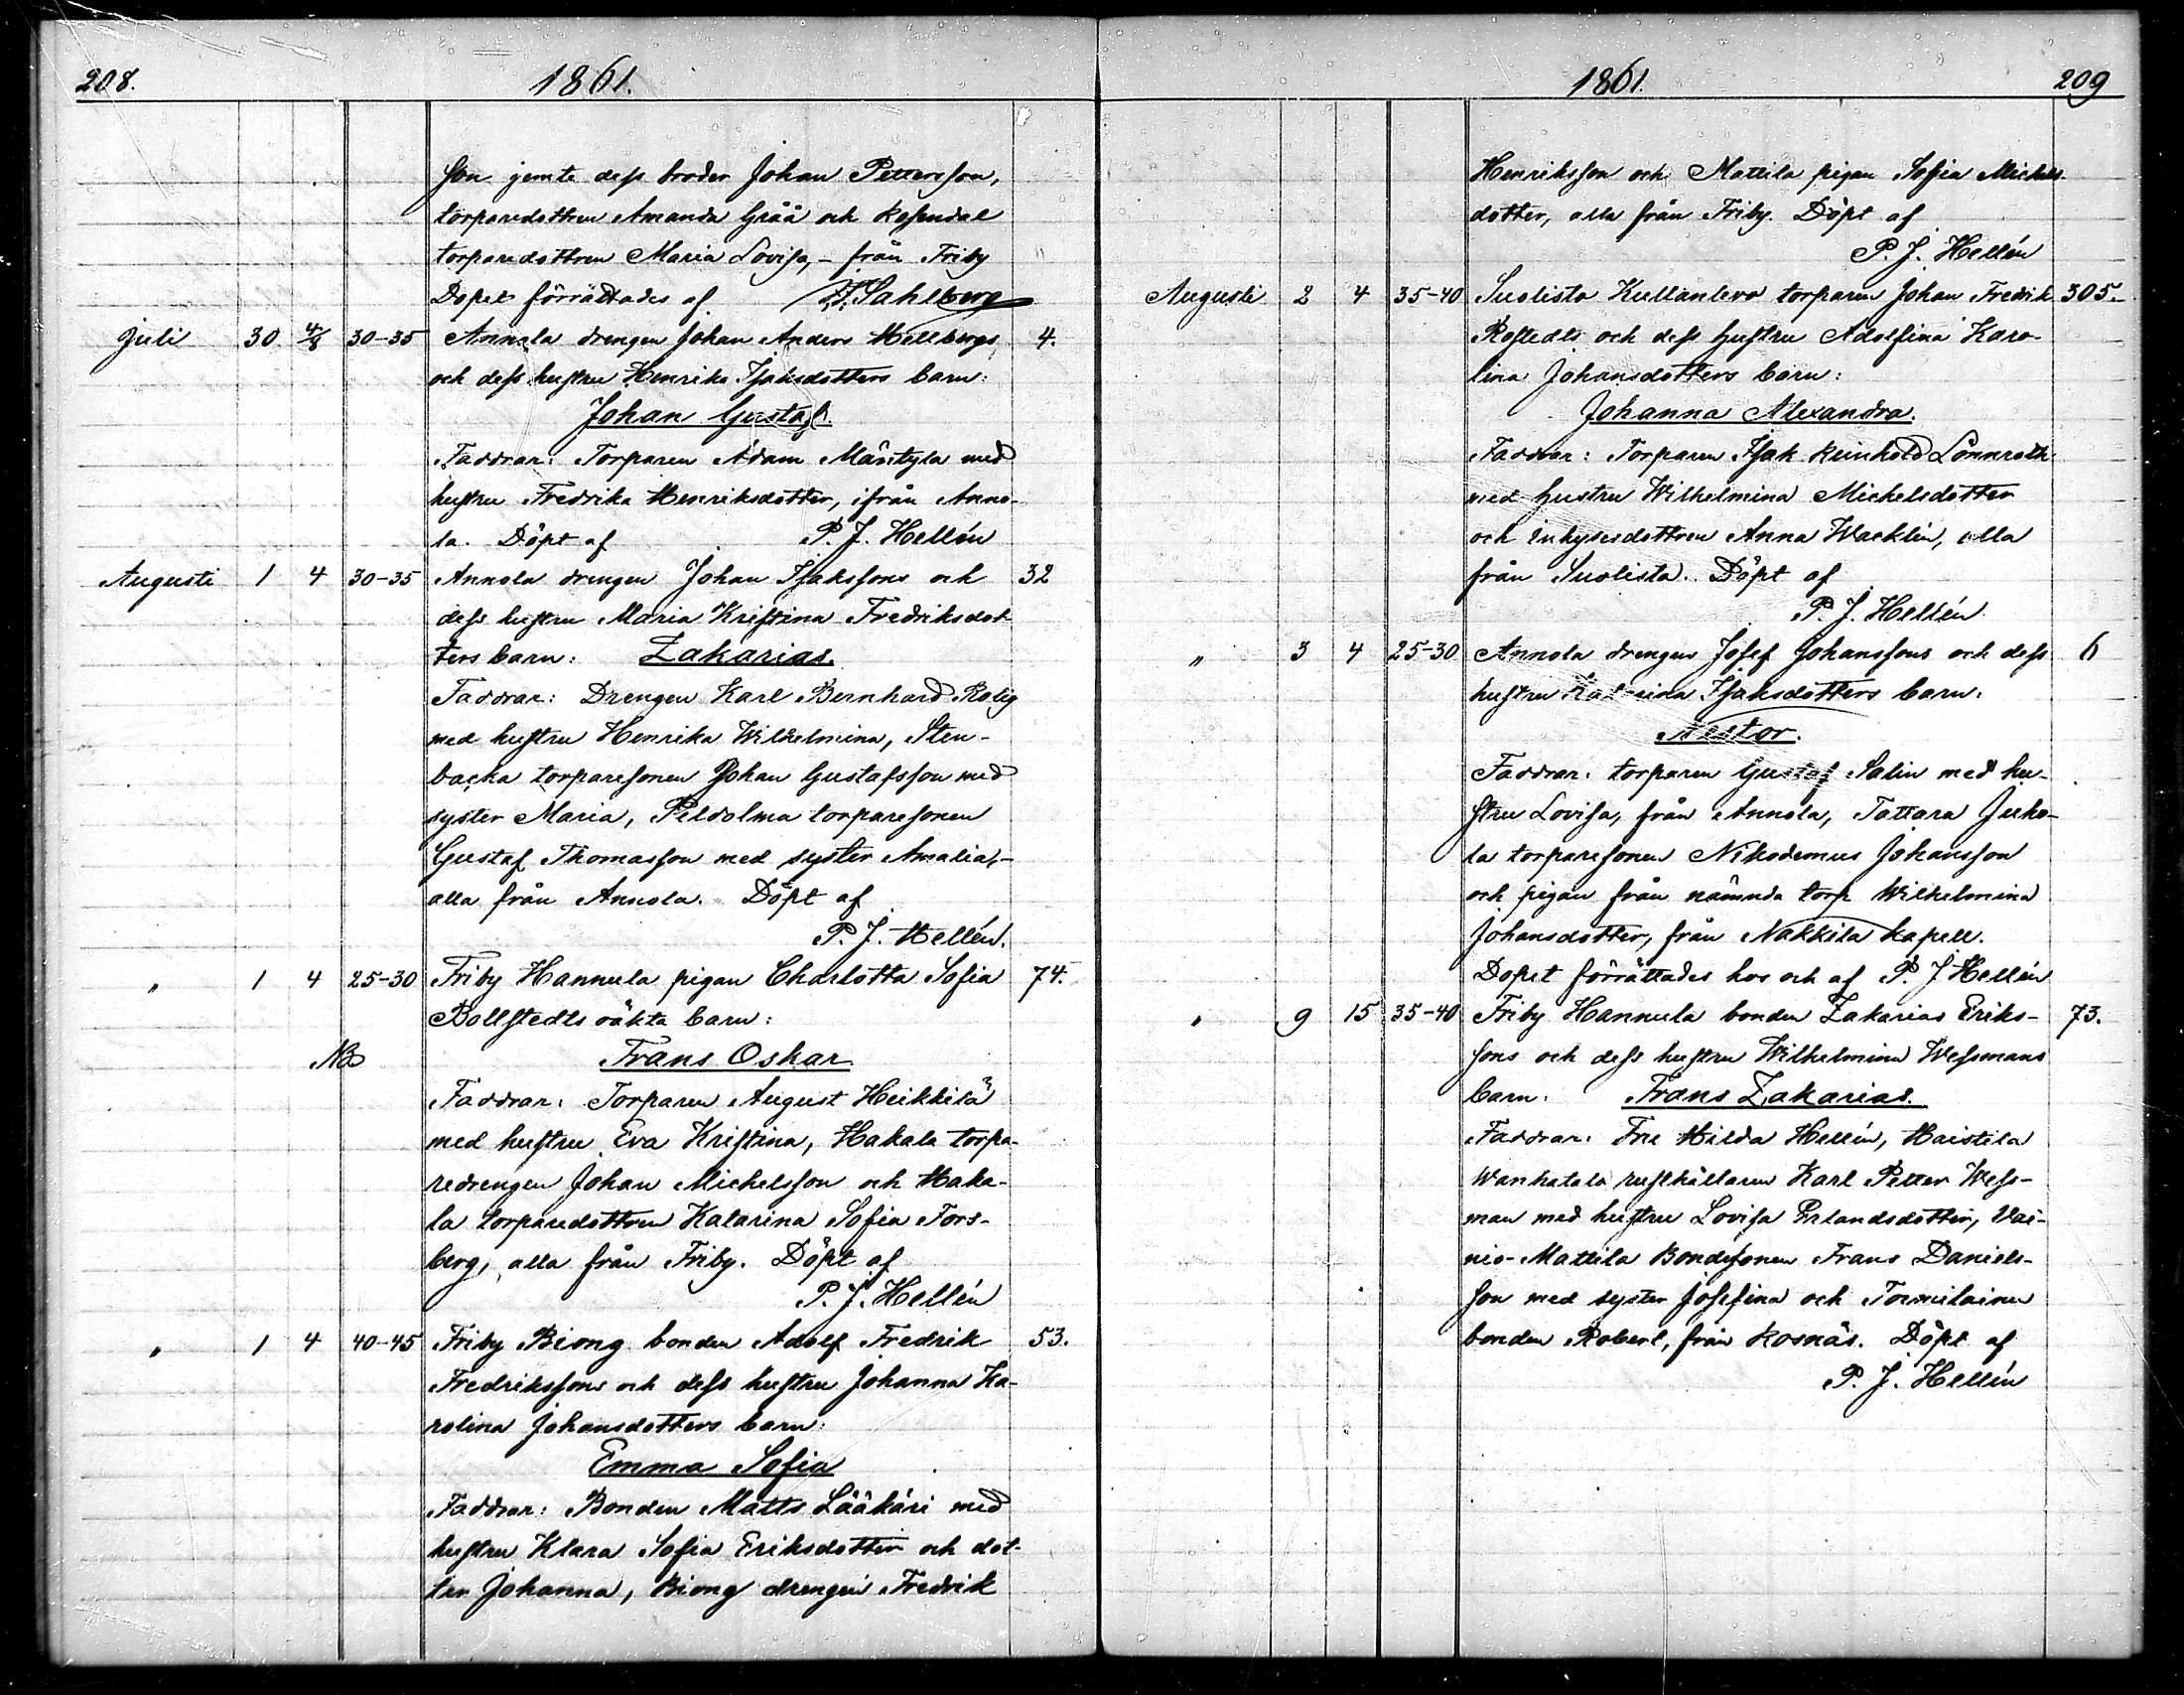 208.
1861.
son jemte dess broder Johan Pettersson,
torparedottren Amanda Gråå och Rosendal
torparedottren Maria Lovisa,- från Friby
Dopet förrättades af Sahlberg
Juli 30 4/8 30-35 Annola drengen Johan Anders Hellbergs 4.
och dess hustru Henrika Isaksdotters barn:
Johan Gustaf.
Faddrar: Torparen Adam Mäntyla med
hustru Fredrika Henriksdotter, ifrån Anno-
la. Döpt af P. J. Hellén
Augusti 1 4 30-35 Annola drengen Johan Isakssons och 32
dess hustru Maria Kristina Fredriksdot-
ters barn: Zakarias.
Faddrar: Drengen Karl Bernhard Rolig
med hustru Henrika Wilhelmina, Sten-
backa torparesonen Johan Gustafsson med
syster Maria, Peldolma torparesonen
Gustaf Thomasson med syster Amalia,-
alla från Annola. Döpt af
P. J. Hellén.
" 1 4 25-30 Friby Hannula pigan Charlotta Sofia 74.
Bollstedts oäkta barn:
NB Frans Oskar
Faddrar: Torparen August Heikkilä
med hustru Eva Kristina, Hakala torpa-
redrengen Johan Michelsson och Haka-
la torparedottren Katarina Sofia Fors-
berg, alla från Friby. Döpt af
P. J. Hellén
" 1 4 40-45 Friby Biong bonden Adolf Fredrik 53.
Fredrikssons och dess hustru Johanna Ka-
rolina Johansdotters barn:
Emma Sofia
Faddrar: Bonden Matts Lääkäri med
hustru Klara Sofia Eriksdotter och dot-
ter Johanna, Biong drengen Fredrik
1861.
209
Henriksson och Mattila pigan Sofia Michels-
dotter, alla från Friby. Döpt af
P. J. Hellén
Augusti 2 4 35-40 Suolista Kullanlevo torparen Johan Fredrik 305.
Rostedts och dess hustru Adolfina Karo-
lina Johansdotters barn:
Johanna Alexandra.
Faddrar: Torparen Isak Reinhold Lönnroth
med hustru Wilhelmina Michelsdotter
och inhysesdottren Anna Wacklin, alla
från Suolista. Döpt af
P. J. Hellén.
" 3 4 25-30 Annola drengen Josef Johanssons och dess 6
hustru Katarina Isaksdotters barn:
Nestor.
Faddrar: torparen Gustaf Salin med hu-
stru Lovisa, från Annola, Tattara Juho-
la torparesonen Nikodemus Johansson
och pigan från nämnda torp Wilhelmina
Johansdotter, från Nakkila kapell.
Dopet förrättades hos och af P. J. Hellén
" 9 15 35-40 Friby Hannula bonden Zakarias Eriks- 73.
sons och dess hustru Wilhelmina Wessmans
barn: Frans Zakarias.
Faddrar: Frn Hilda Hellén, Haistila
Wanhatalo rusthållaren Karl Petter Wess-
man med hustru Lovisa Erlandsdotter, Vai-
nio-Mattila Bondesonen Frans Daniels-
son med syster Josefina och Tormilainen
bonden Robert, från Kosnäs. Döpt af
P. J. Hellén